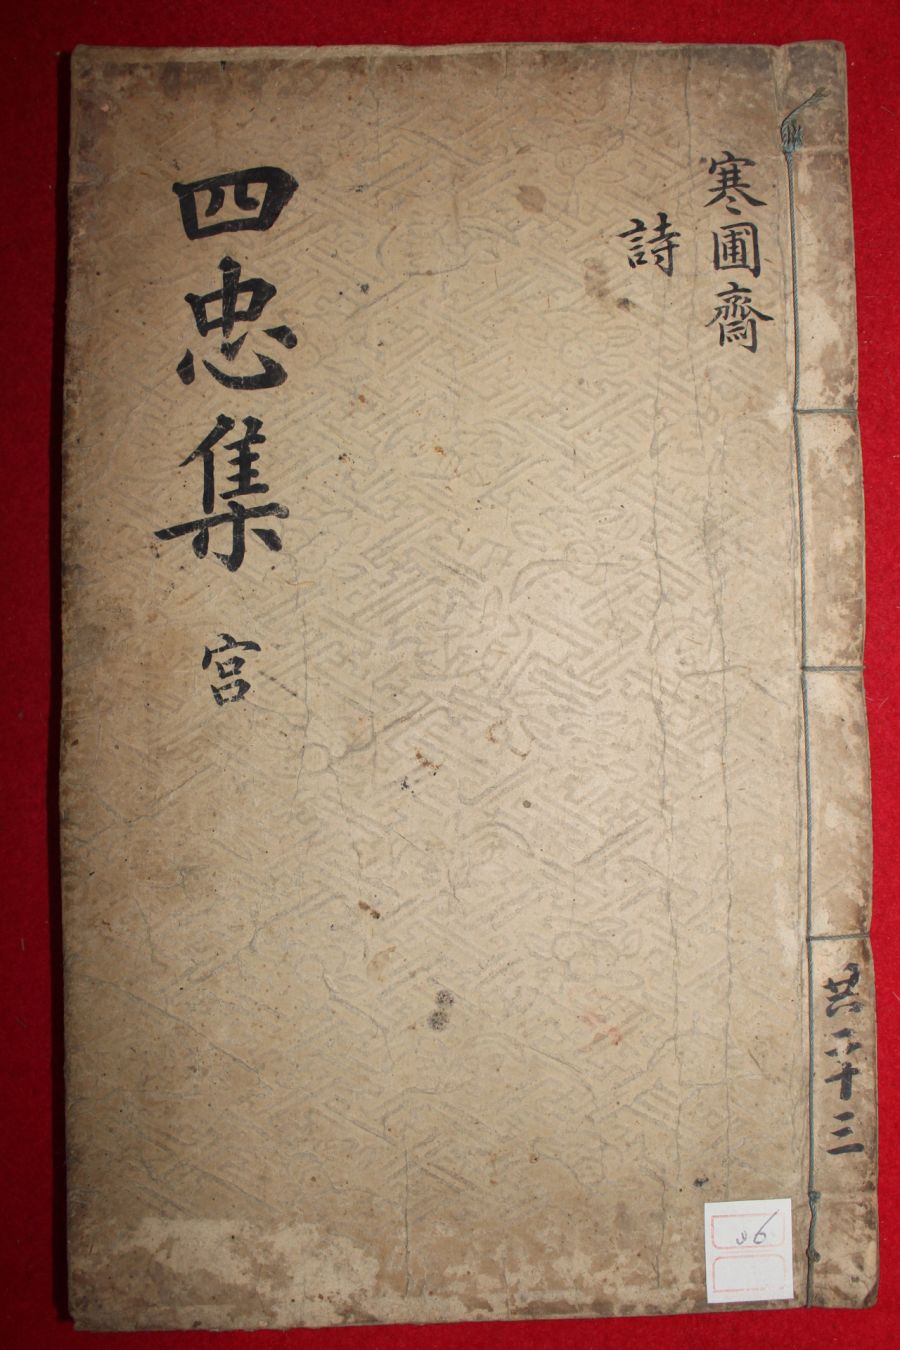 共二十三
寒圃齋
詩
四忠集 宮